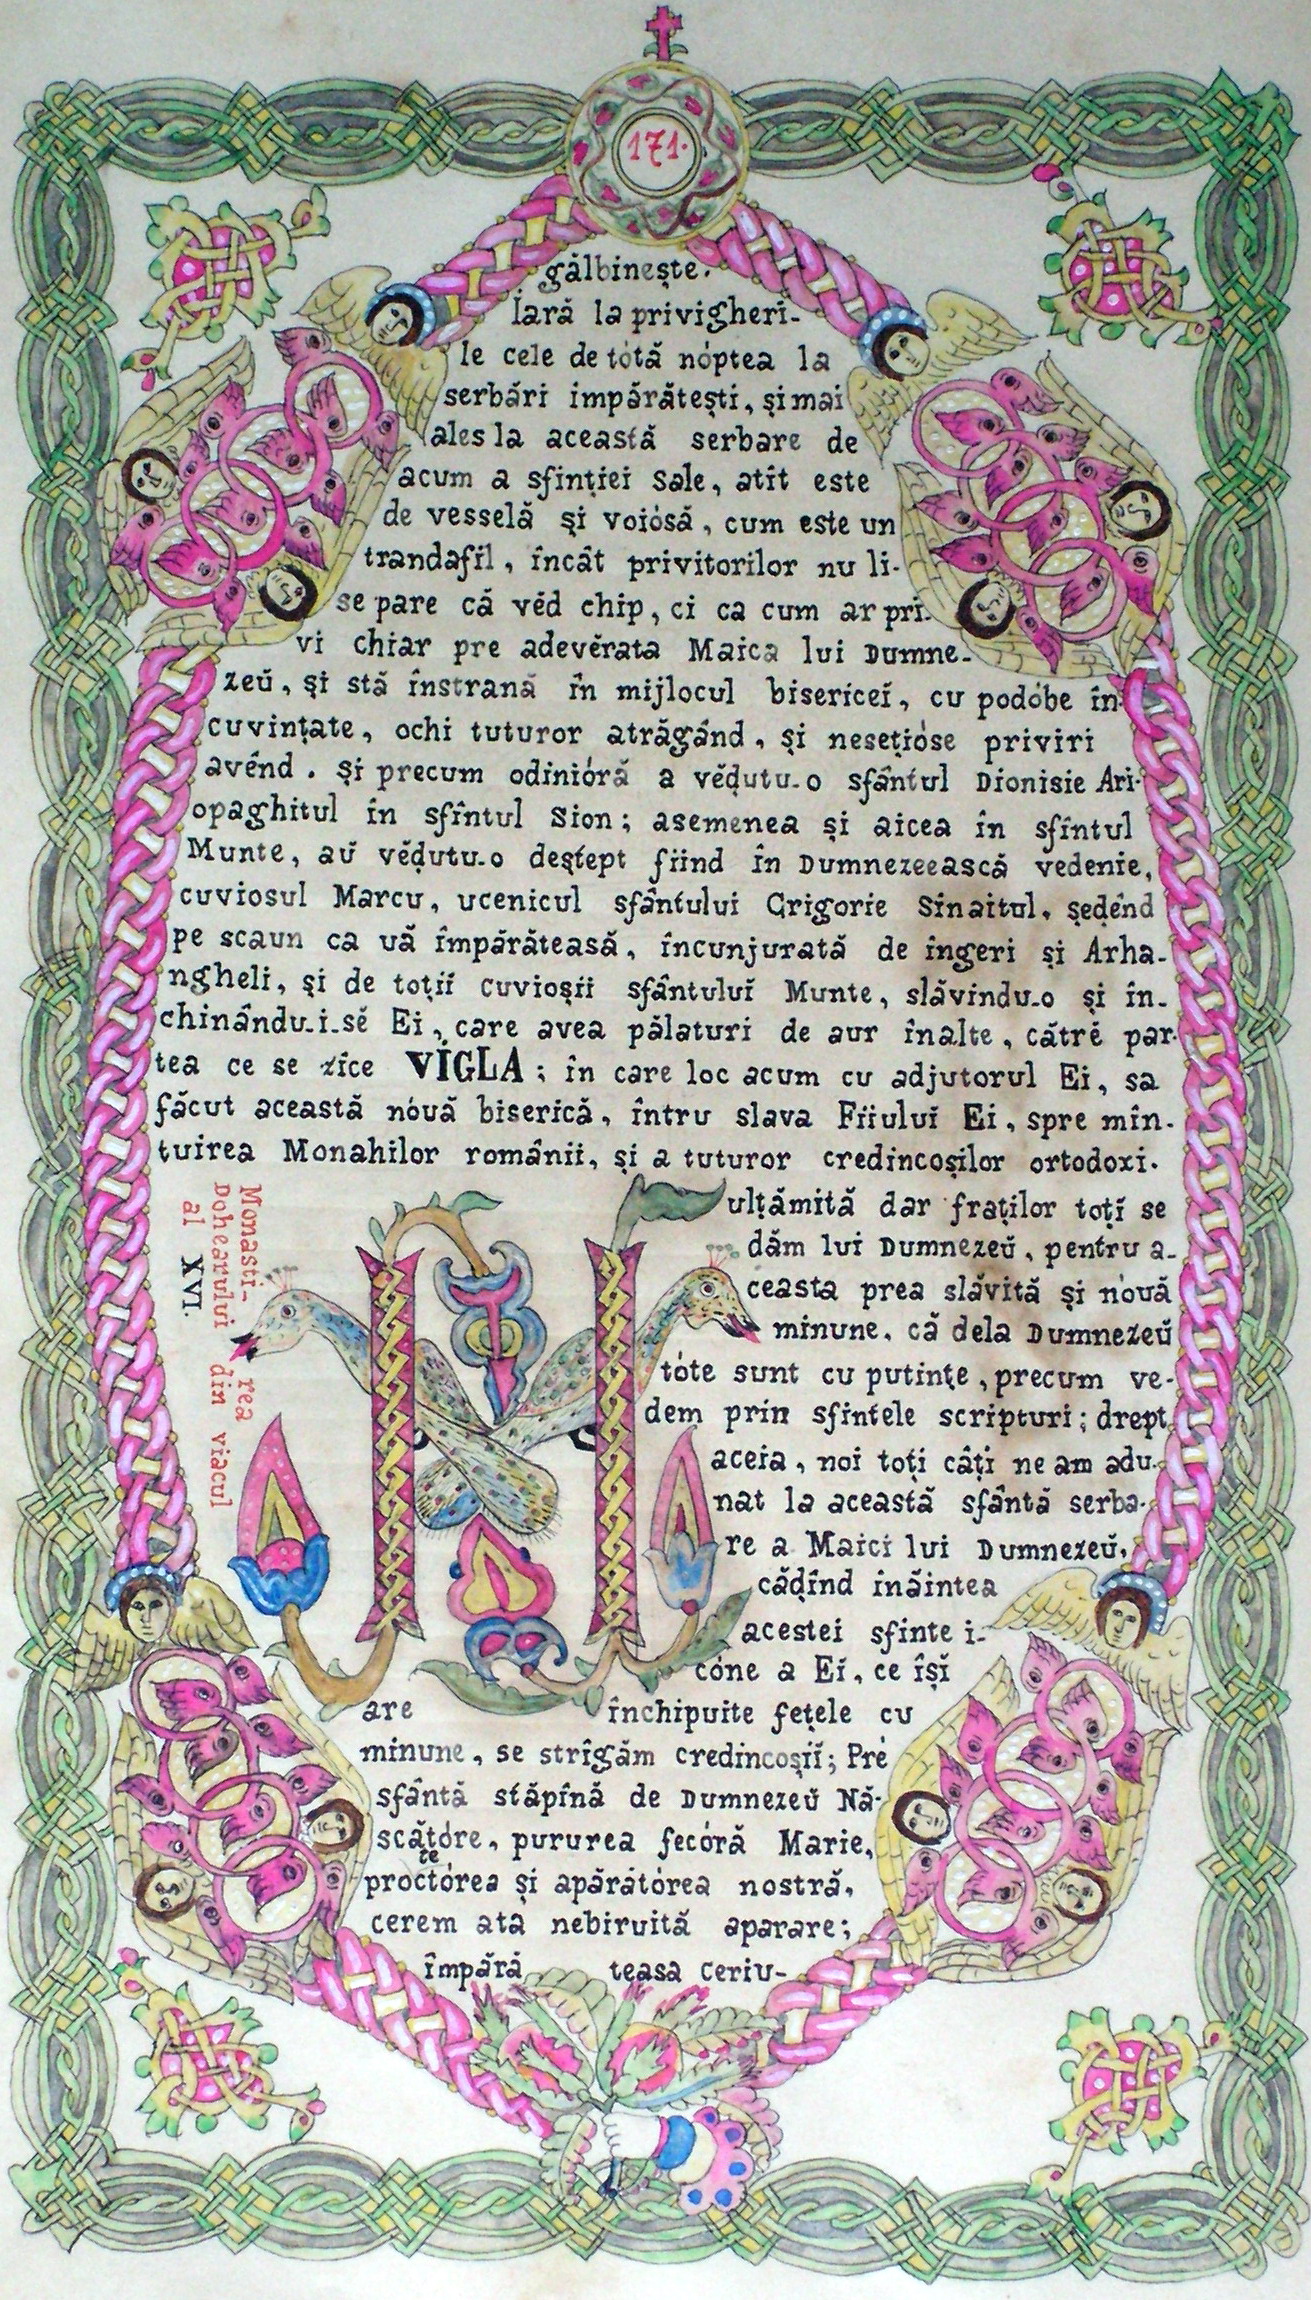 171.
gălbineşte.
Iară la privigheri-
le cele de tótă nóptea la
serbări impărăteşti, şi mai
ales la această serbare de
acum a sfinţiei Sale, atît este
de vesselă şi voiósă, cum este un
trandafil, încât privitorilor nu li-
se pare că věd chip, ci ca cum ar pri-
vi chiar pre adevěrata Maica lui Dumne-
zeŭ, şi stă înstrană în mijlocul bisericeĭ, cu podóbe în
cuvinţate, ochi tuturor atrăgând, şi neseţióse priviri
avênd. Şi precum odinióră a věḍutu-o sfântul Dionisie Ari-
opaghitul în sfîntul Sion; asemenea şi aicea în sfîntul
Munte, aŭ věḍutu-o deştept fiind în Dumnezeească vedenie,
cuviosul Marcu, ucenicul sfântului Grigorie Sinaitul, şeḍênd
pe scaun ca uă împărăteasă, încunjurată de îngeri şi Arha-
ngheli, şi de toţiĭ cuvioşii sfântuluĭ Munte, slăvindu-o şi în-
chinându-i-sĕ Ei, care avea pălaturi de aur înalte, cătrĕ par-
tea ce se zice VIGLA; în care loc acum cu adjutorul Ei, sa
făcut această nóuă biserică, întru slava Fiiuluĭ Ei, spre mîn-
tuirea Monahilor românii, şi a tuturor credincoşilor ortodoxi.
Monasti-rea
Doheariului din viacul
al XVI.
M
ulţămită dar fraţilor toţĭ se
dăm lui Dumnezeŭ, pentru a-
ceasta prea slăvită şi nouă
minune, că dela Dumnezeŭ
tóte sunt cu putinţe, precum ve-
dem prin sfintele scripturi; drept
aceia, noi toţi câţi ne am adu-
nat la această sfântă serba-
re a Maici lui Dumnezeŭ,
căḍînd înăintea
acestei sfinte i-
cóne a Eĭ, ce îşĭ
are închipuite feţele cu
minune, se strigăm credincoşiĭ; Pré
sfântă stăpînă de Dumnezeŭ Nă-
scătóre, pururea fecóră Marie,
proctetórea şi apărătórea nostră,
cerem ata nebiruită aparare;
împără teasa ceriu-